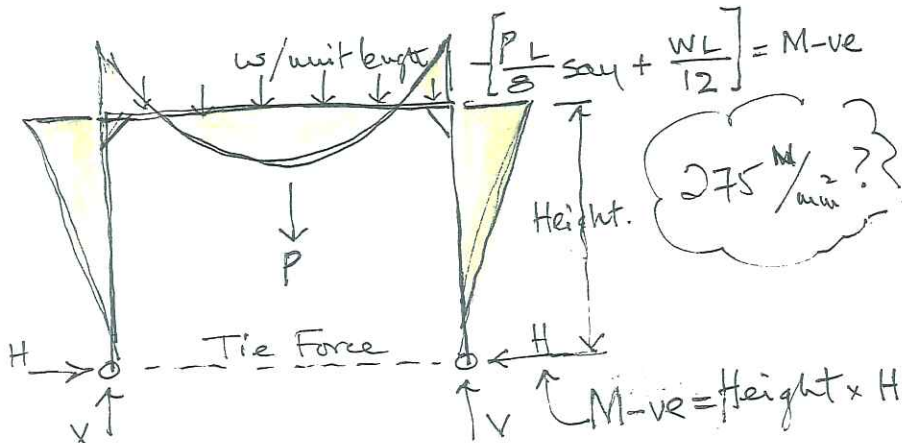 w/unit length
-[PL/8 say + WL/12] = M-ve
275 N/mm² ?
Height.
P
H
Tie Force
H
V
V
M-ve = Height x H